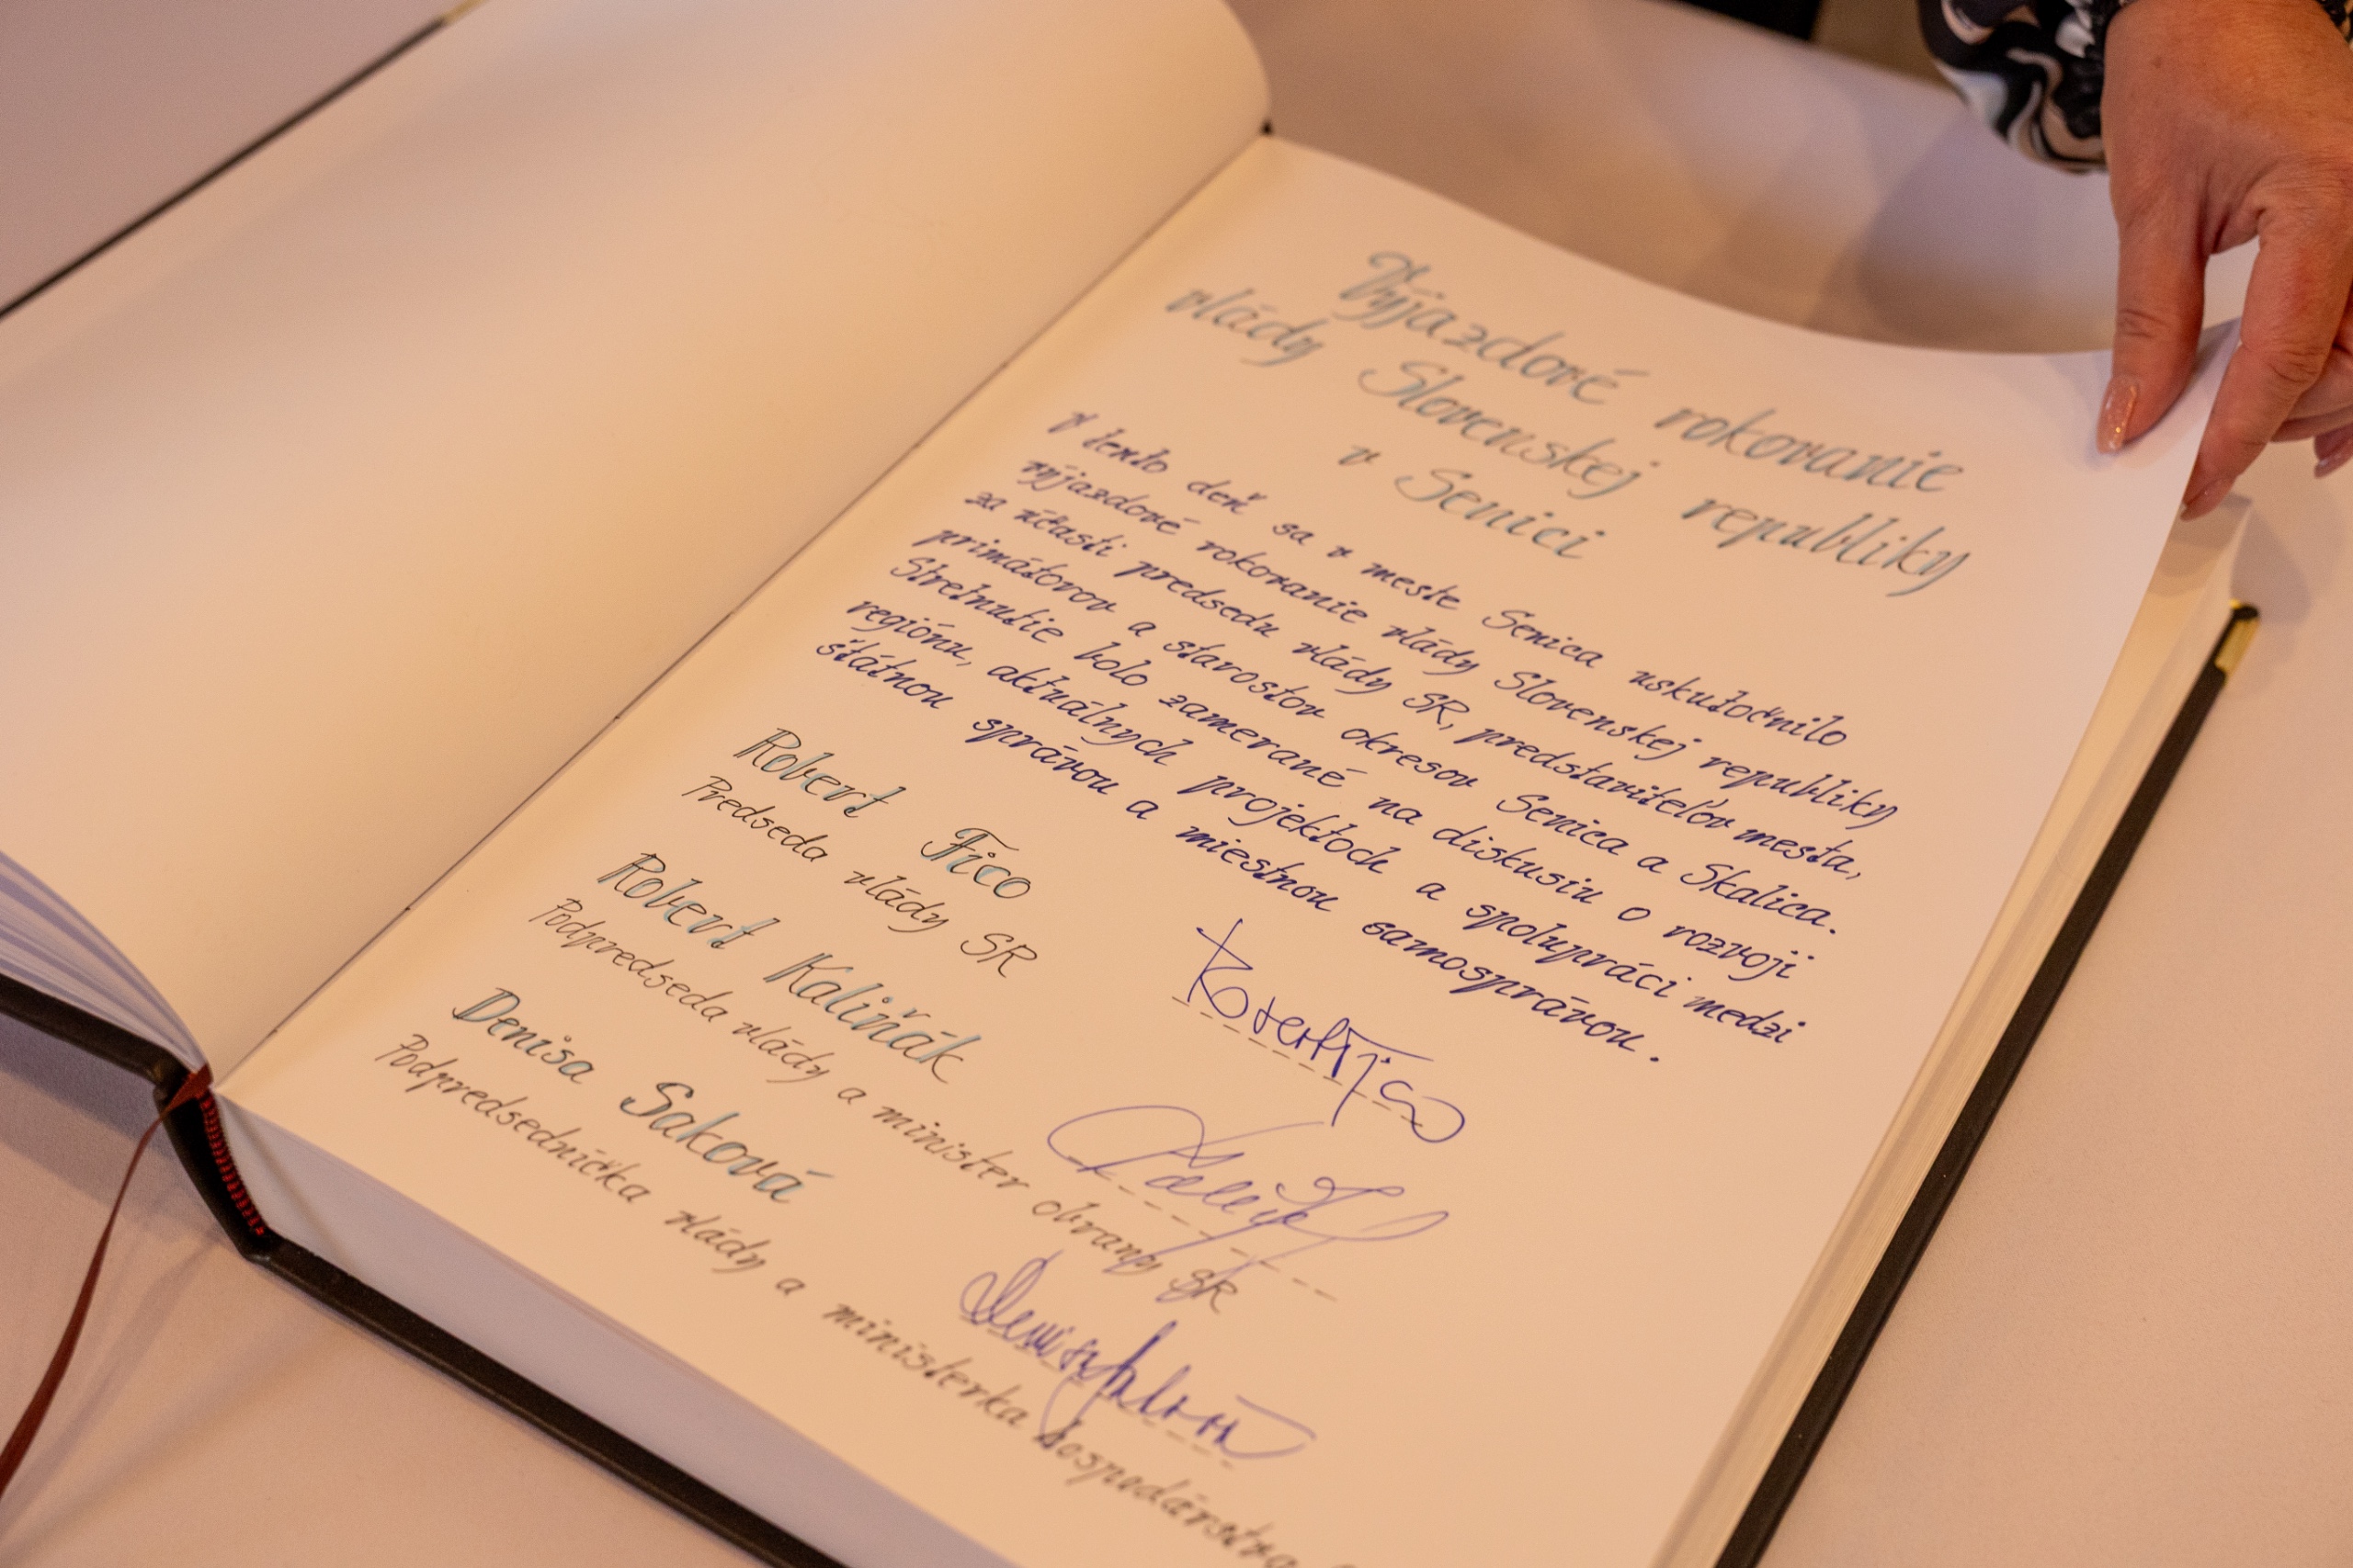 Výjazdové rokovanie
vlády Slovenskej republiky
v Senici
V tento deň sa v meste Senica uskutočnilo
výjazdové rokovanie vlády Slovenskej republiky
za účasti predsedu vlády SR, predstaviteľov mesta,
primátorov a starostov okresov Senica a Skalica.
Stretnutie bolo zamerané na diskusiu o rozvoji
regiónu, aktuálnych projektoch a spolupráci medzi
štátnou správou a miestnou samosprávou.
Robert Fico
Predseda vlády SR
Robert Fico
Robert Kaliňák
Podpredseda vlády a minister obrany SR
Denisa Saková
Podpredsedníčka vlády a ministerka hospodárstva